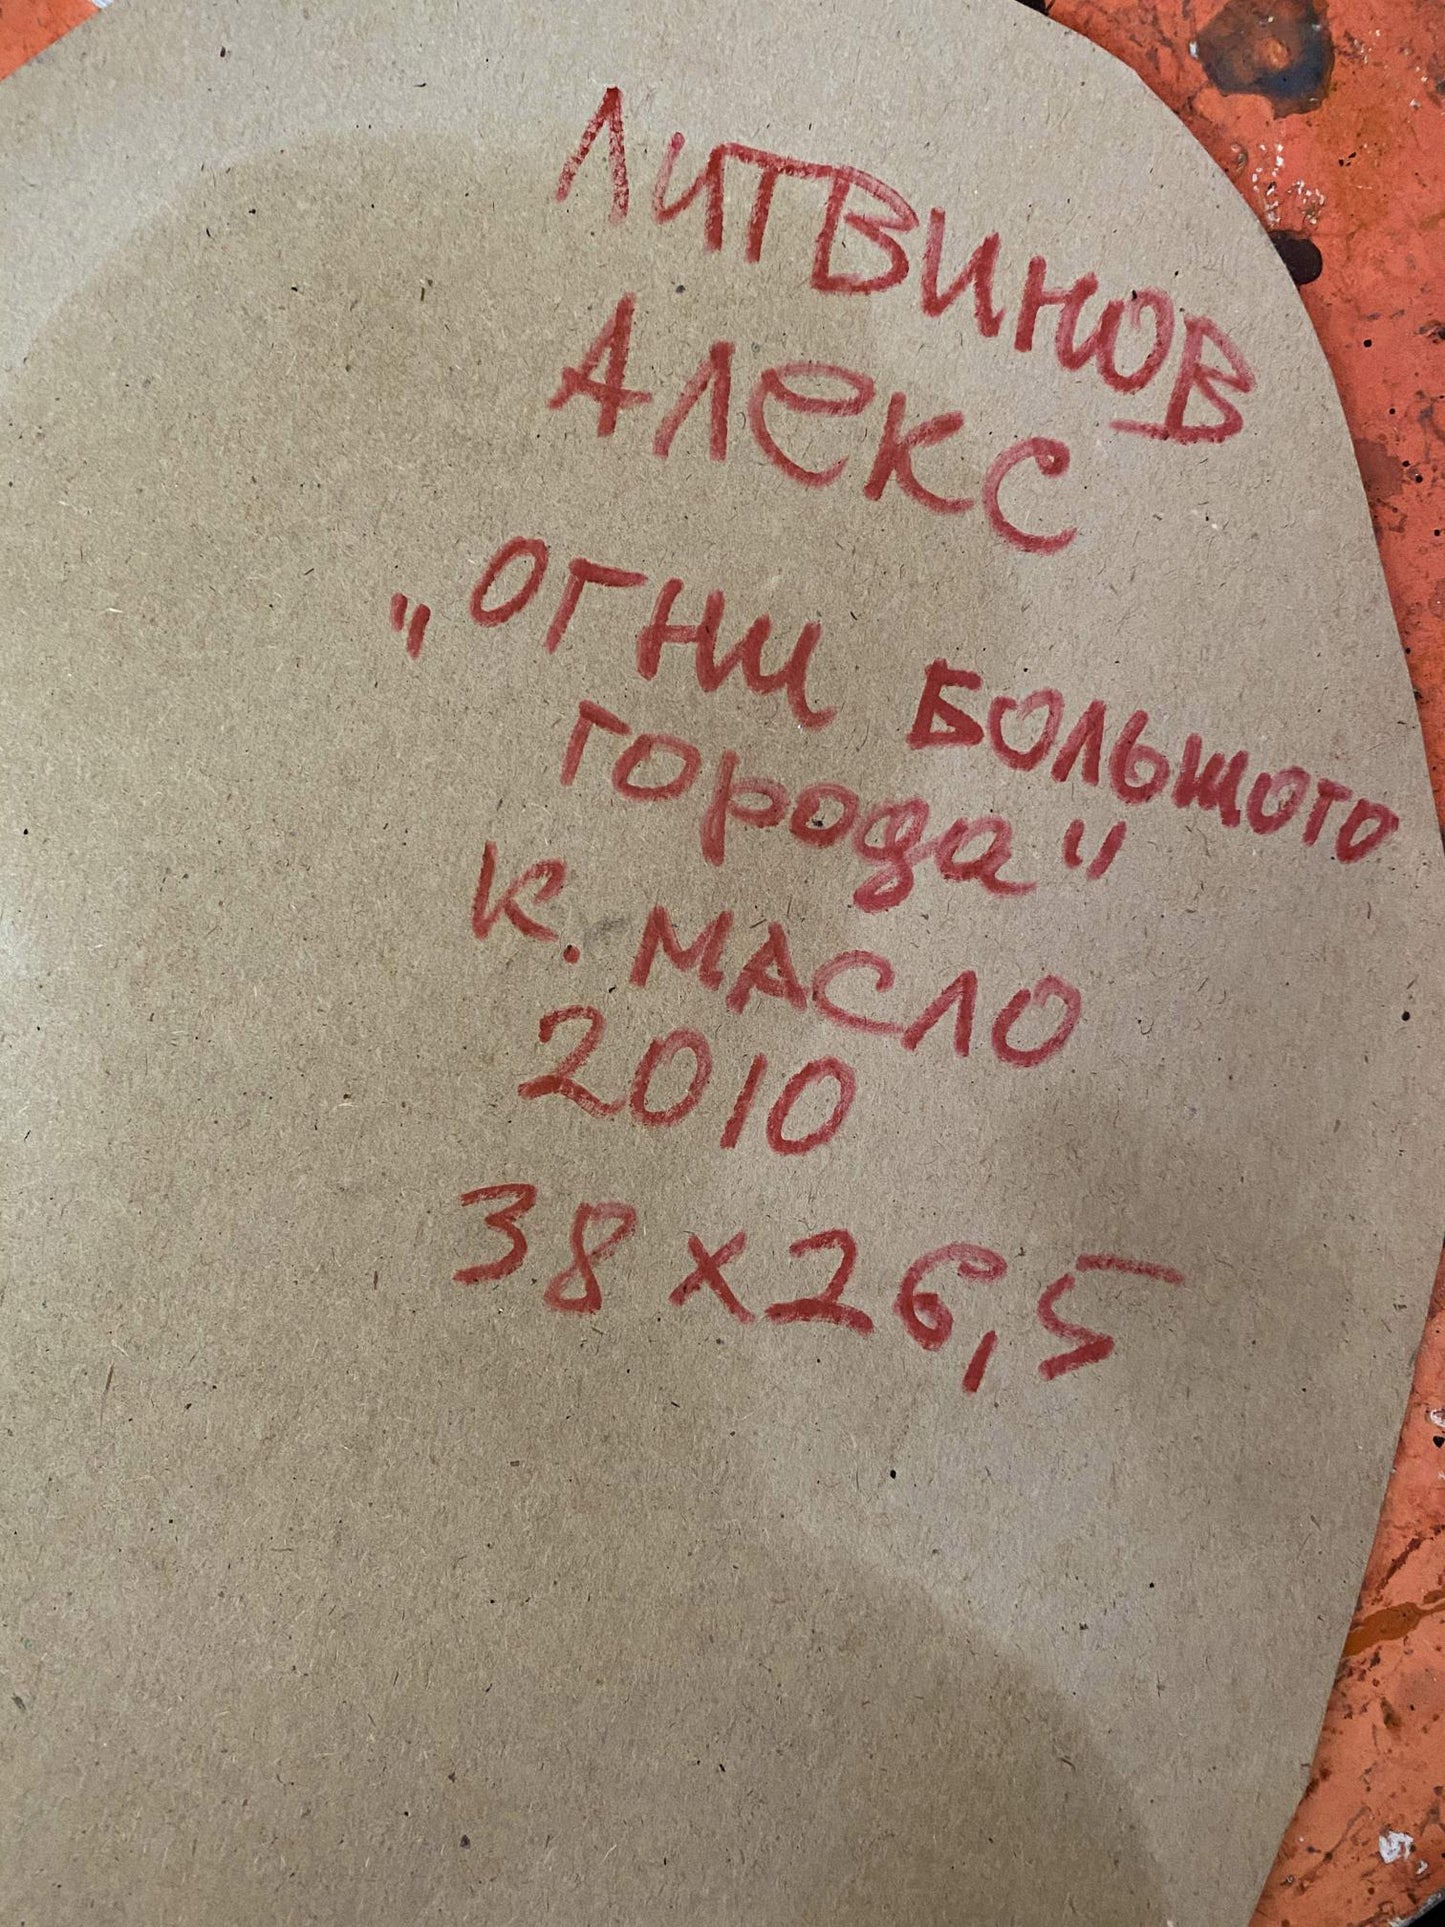 ЛИТВИНОВ
АЛЕКС
"ОГНИ БОЛЬШОГО
города"
К. МАСЛО
2010
38 x 26,5